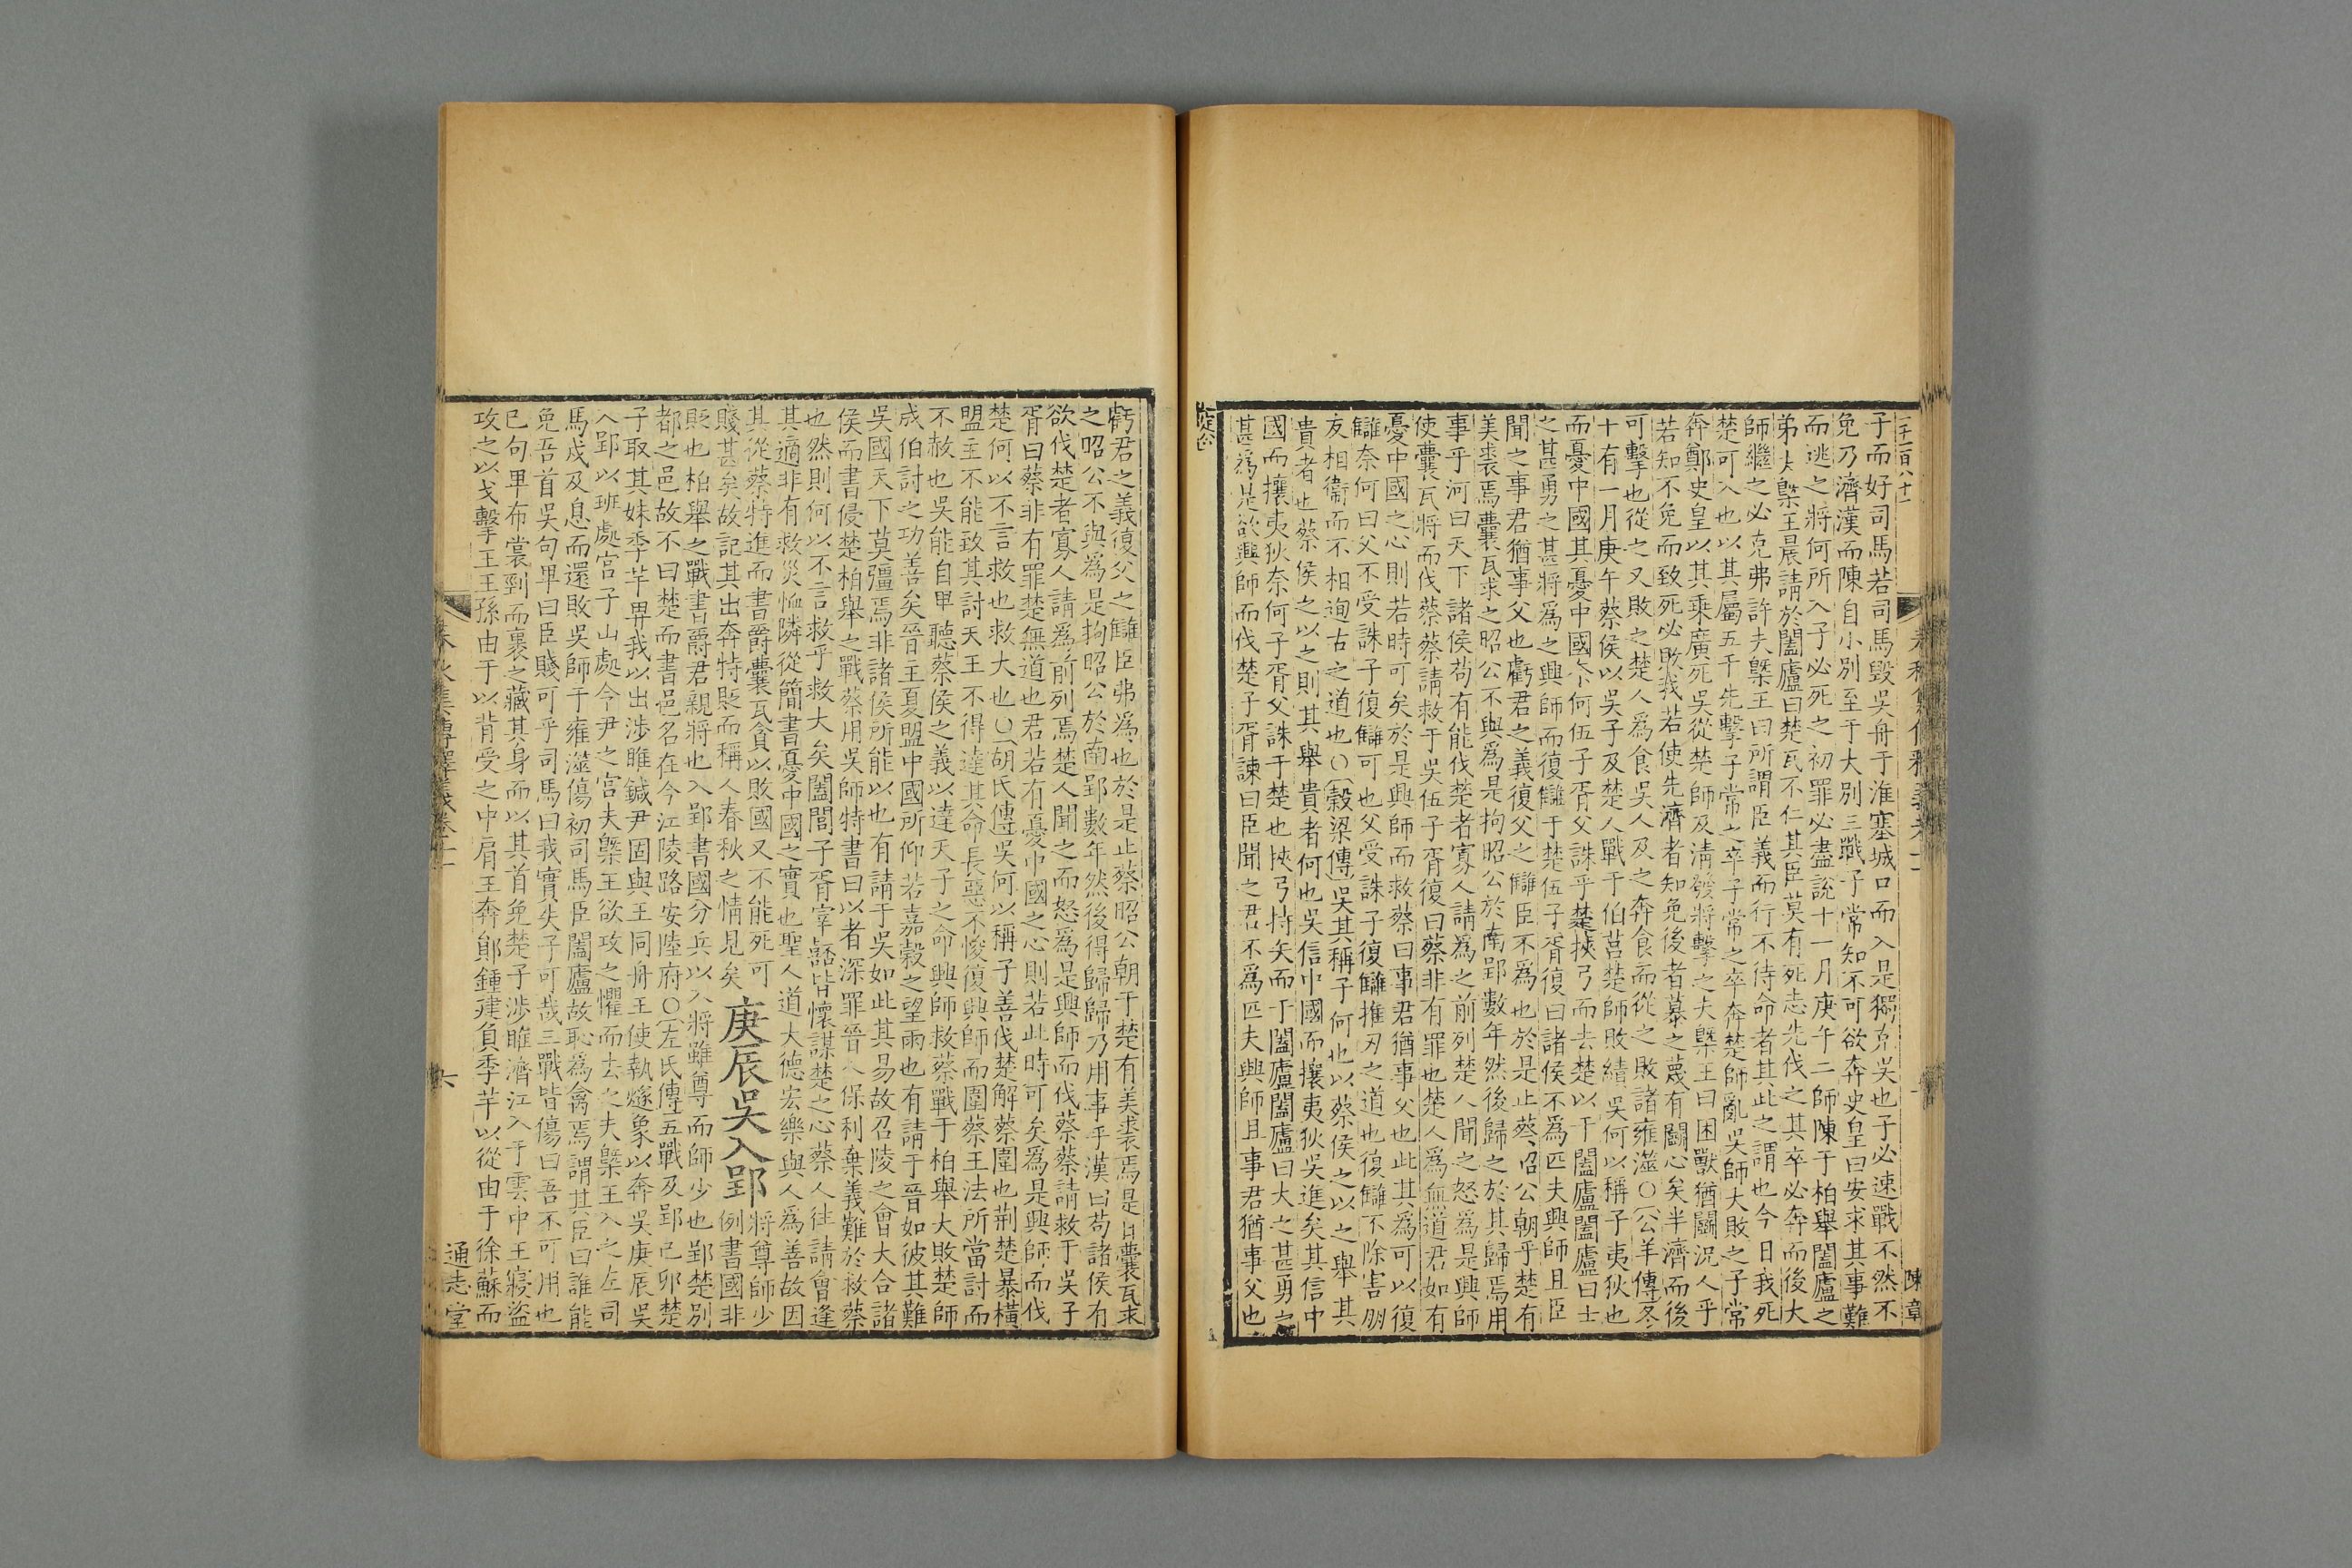 子而好司馬若司馬毀吳舟于淮塞城口而入是獨克吳也子必速戰不然不
免乃濟漢而陳自小別至于大別三戰子常知不可欲奔史皇曰安求其事難
而逃之將何所入子必死之初罪必盡說十一月庚午二師陳于柏舉闔廬之
弟夫槩王晨請於闔廬曰楚瓦不仁其臣莫有死志先伐之其卒必奔而後大
師繼之必克弗許夫槩王曰所謂臣義而行不待命者其此之謂也今日我死
楚可入也以其屬五千先擊子常之卒子常之卒奔楚師亂吳師大敗之子常
奔鄭史皇以其乘廣死吳從楚師及清發將擊之夫槩王曰困獸猶鬬況人乎
若知不免而致死必敗我若使先濟者知免後者慕之蔑有鬬心矣半濟而後
可擊也從之又敗之楚人爲食吳人及之奔食而從之敗諸雍澨○公羊傳冬
十有一月庚午蔡侯以吳子及楚人戰于伯莒楚師敗績吳何以稱子夷狄也
而憂中國其憂中國奈何伍子胥父誅乎楚挾弓而去楚以干闔廬闔廬曰士
之甚勇之甚將爲之興師而復讎于楚伍子胥復曰諸侯不爲匹夫興師且臣
聞之事君猶事父也虧君之義復父之讎臣不爲也於是止蔡昭公朝乎楚有
美裘焉囊瓦求之昭公不與爲是拘昭公於南郢數年然後歸之於其歸焉用
事乎河曰天下諸侯苟有能伐楚者寡人請爲之前列楚人聞之怒爲是興師
使囊瓦將而伐蔡蔡請救于吳伍子胥復曰蔡非有罪也楚人爲無道君如有
憂中國之心則若時可矣於是興師而救蔡曰事君猶事父也此其爲可以復
讎奈何曰父不受誅子復讎可也父受誅子復讎推刃之道也復讎不除害朋
友相衞而不相迿古之道也○穀梁傳吳其稱子何也以蔡侯之以之舉其
貴者也蔡侯之以之則其舉貴者何也吳信中國而攘夷狄吳進矣其信中
國而攘夷狄奈何子胥父誅于楚也挾弓持矢而干闔廬闔廬曰大之甚勇之
甚爲是欲興師而伐楚子胥諫曰臣聞之君不爲匹夫興師且事君猶事父也
陳章
虧君之義復父之讎臣弗爲也於是止蔡昭公朝于楚有美裘焉是日囊瓦求
之昭公不與爲是拘昭公於南郢數年然後得歸歸乃用事乎漢曰苟諸侯有
欲伐楚者寡人請爲前列焉楚人聞之而怒爲是興師而伐蔡蔡請救于吳子
胥曰蔡非有罪楚無道也君若有憂中國之心則若此時可矣爲是興師而伐
楚何以不言救也救大也○胡氏傳吳何以稱子善伐楚解蔡圍也荆楚暴橫
盟主不能致其討天王不得達其命長惡不悛復興師而圍蔡王法所當討而
不赦也吳能自卑聽蔡侯之義以達天子之命興師救蔡戰于柏舉大敗楚師
成伯討之功善矣晉主夏盟中國所仰若嘉穀之望雨也有請于晉如彼其難
吳國天下莫彊焉非諸侯所能以也有請于吳如此其易故召陵之會大合諸
侯而書侵楚柏舉之戰蔡用吳師特書曰以者深罪晉人保利棄義難於救蔡
也然則何以不言救乎救大矣闔閭子胥宰嚭皆懷謀楚之心蔡人往請會逢
其適非有救災恤隣從簡書憂中國之實也聖人道大德宏樂與人爲善故因
其從蔡特進而書爵囊瓦貪以敗國又不能死可
賤甚矣故記其出奔特貶而稱人春秋之情見矣 庚辰吳入郢 將尊師少例書國非
貶也柏舉之戰書爵君親將也入郢書國分兵以入將雖尊而師少也郢楚別
都之邑故不曰楚而書邑名在今江陵路安陸府○左氏傳五戰及郢己卯楚
子取其妹季芊畀我以出涉睢鍼尹固與王同舟王使執燧象以奔吳庚辰吳
入郢以班處宮子山處令尹之宮夫槩王欲攻之懼而去之夫槩王入之左司
馬戍及息而還敗吳師于雍澨傷初司馬臣闔廬故恥爲禽焉謂其臣曰誰能
免吾首吳句卑曰臣賤可乎司馬曰我實失子可哉三戰皆傷曰吾不可用也
已句卑布裳剄而裹之藏其身而以其首免楚子涉睢濟江入于雲中王寢盜
攻之以戈擊王王孫由于以背受之中肩王奔鄖鍾建負季芊以從由于徐蘇而
六
通志堂